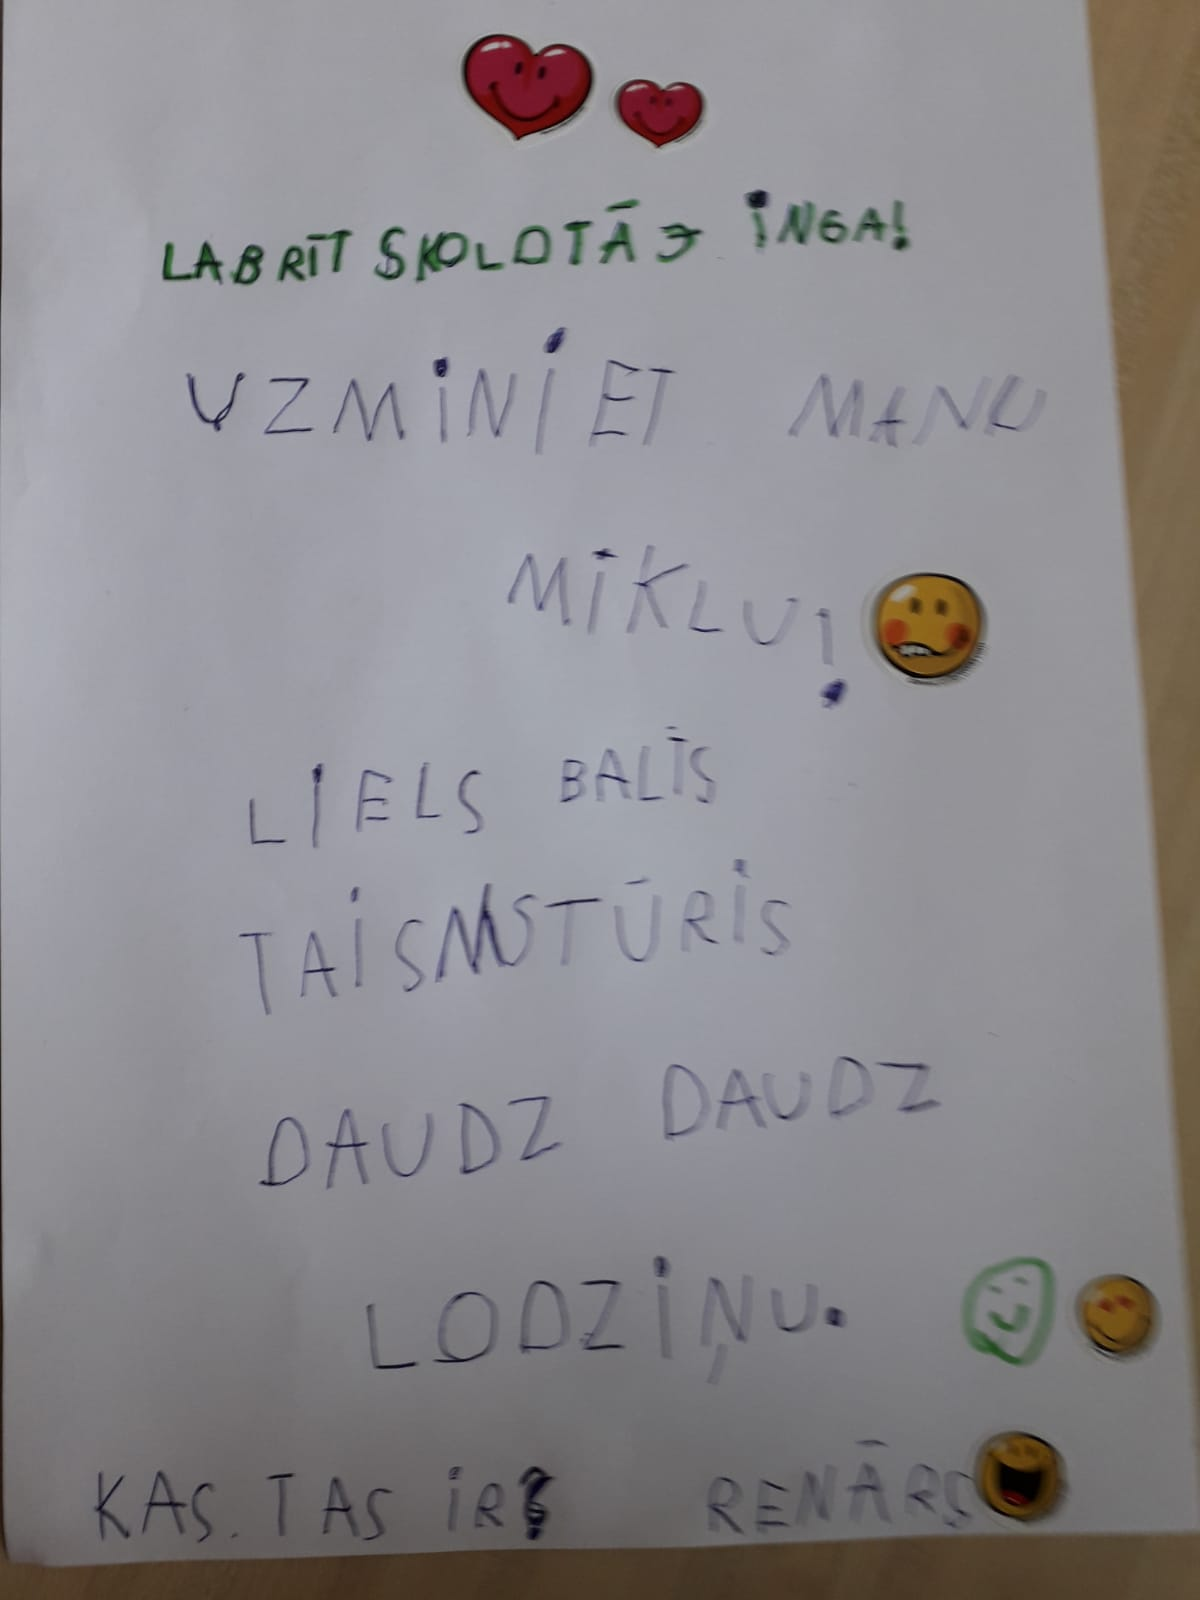 LABRĪT SKOLOTĀJ INGA!
UZMINIET MANU
MĪKLU!
LIELS BALTS
TAISNSTŪRIS
DAUDZ DAUDZ
LODZIŅU.
KAS. TAS IR?
RENĀRS